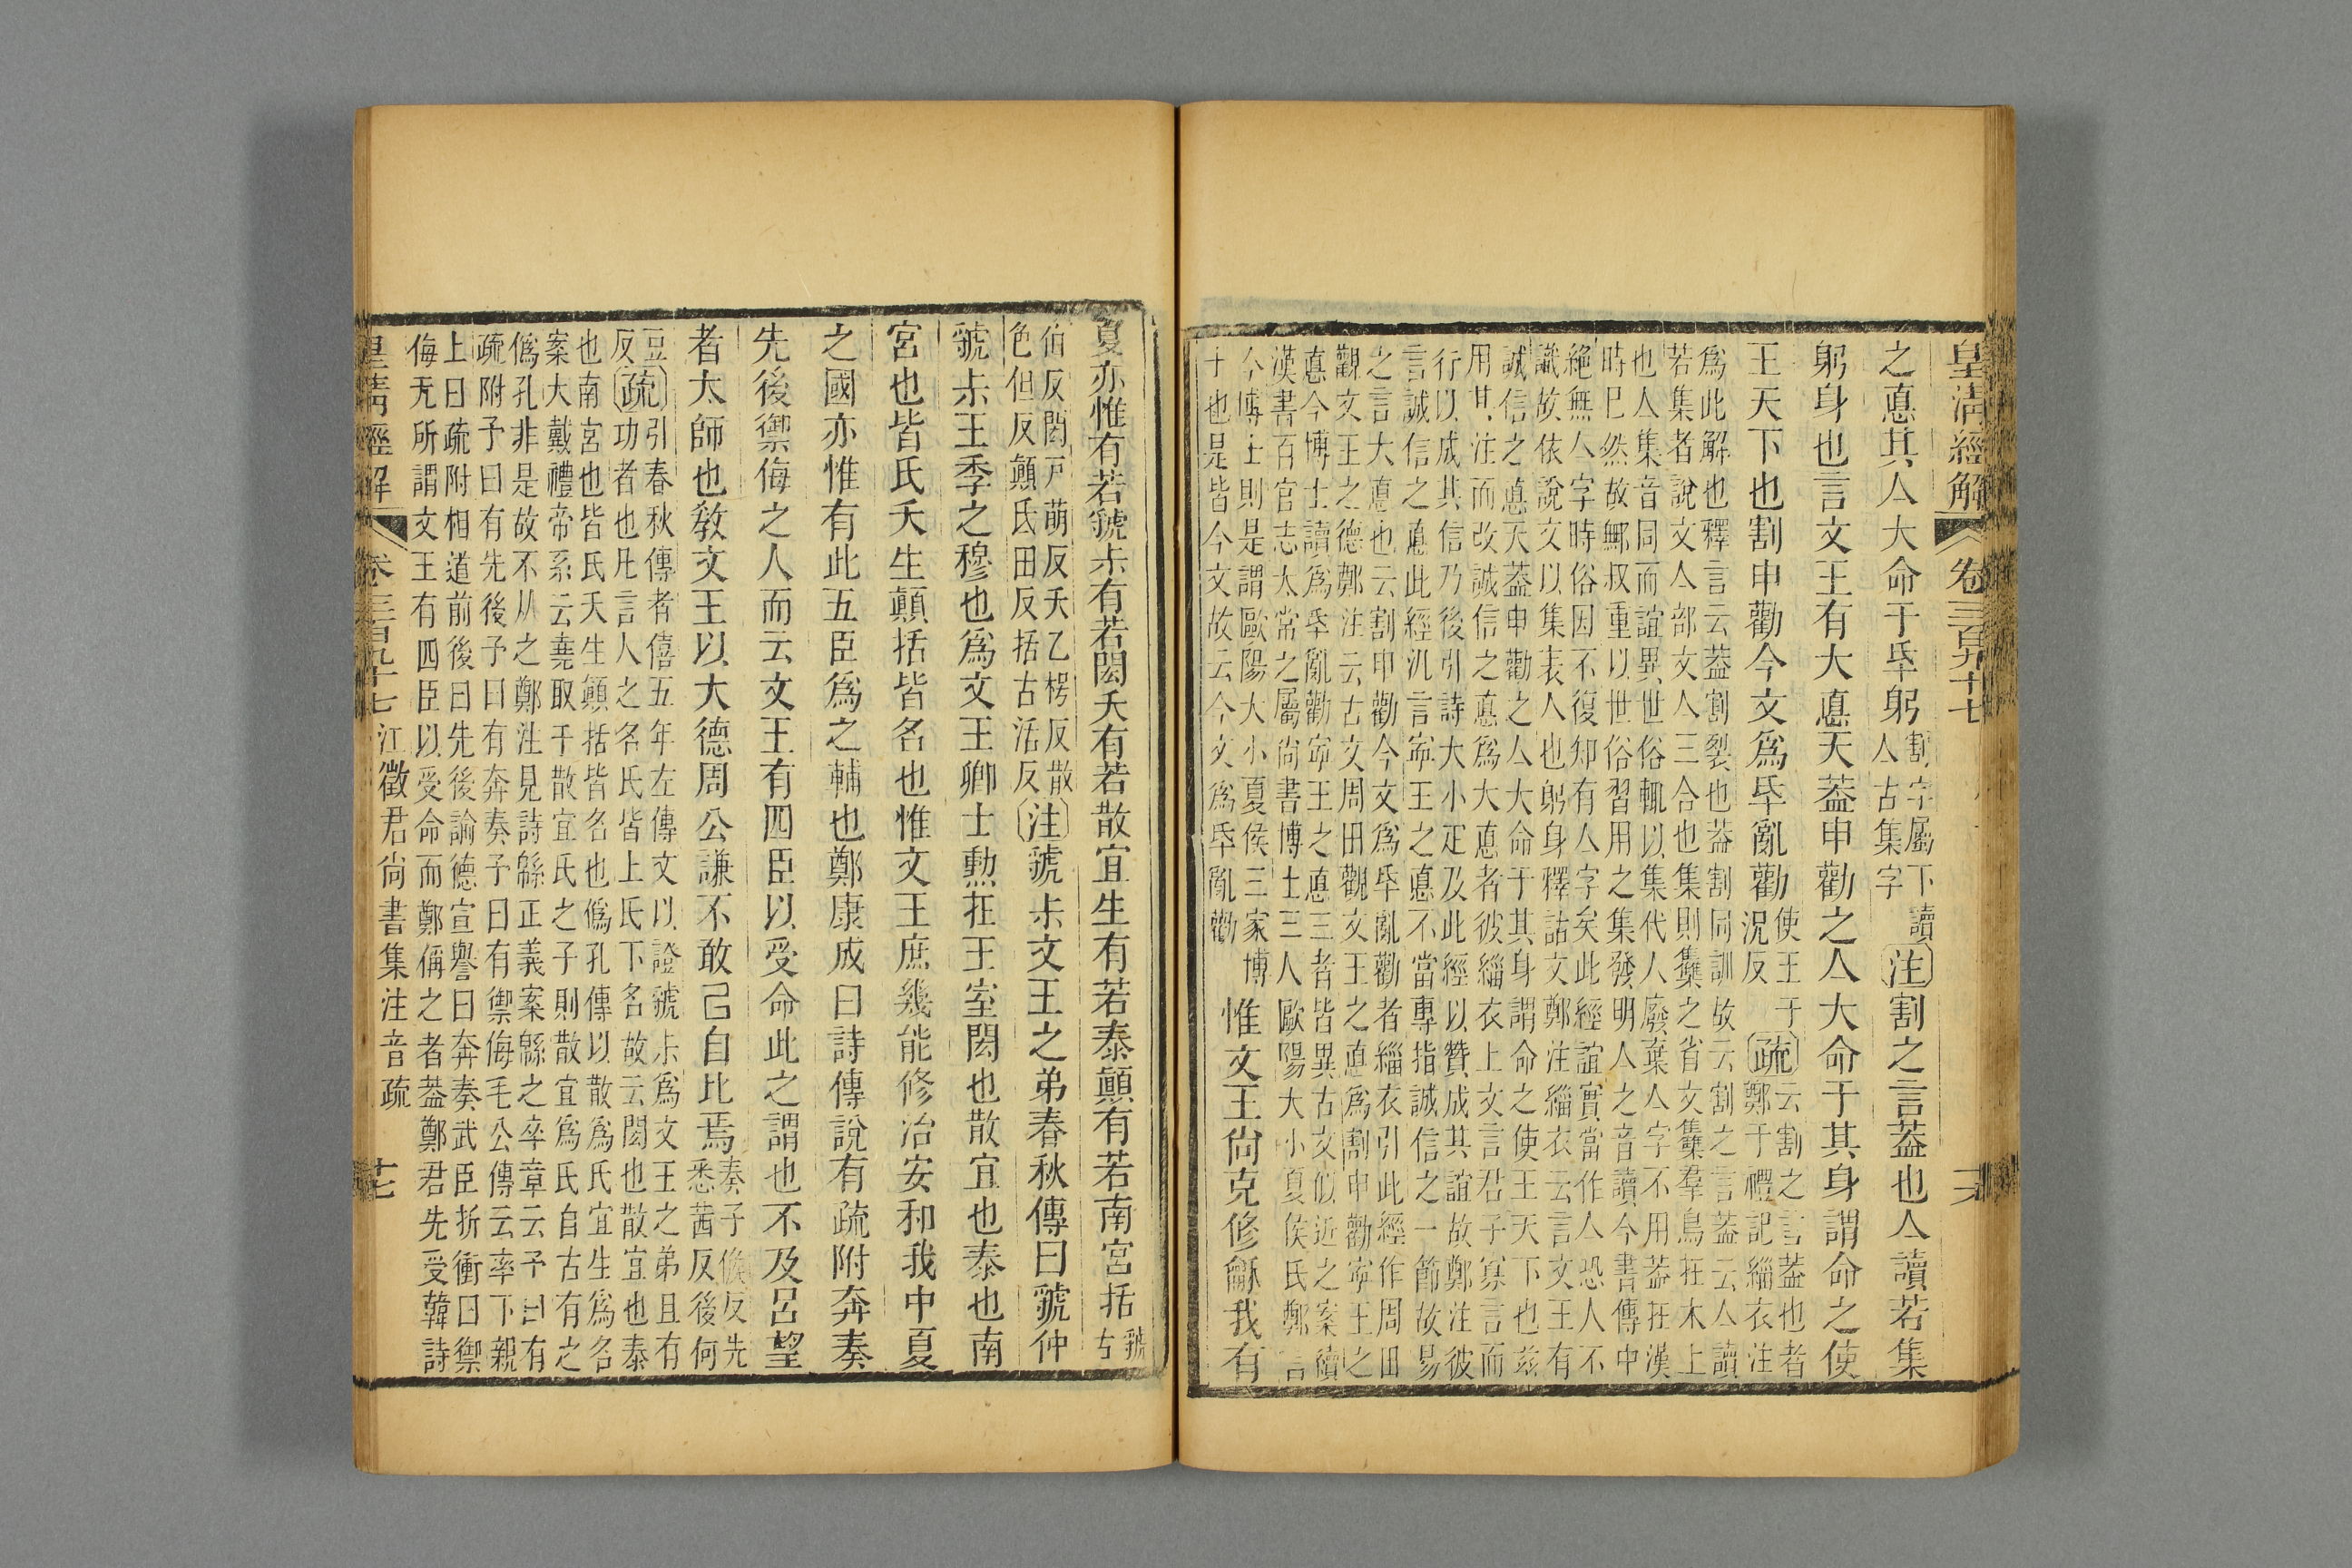 皇清經解 卷三百九十七 六
之悳其亼大命于厥躬割字屬下讀亼古集字注割之言葢也亼讀若集
躬身也言文王有大悳天葢申勸之亼大命于其身謂命之使
王天下也割申勸今文爲厥亂勸使王于況反疏云割之言葢也者鄭于禮記緇衣注
爲此解也釋言云葢割裂也葢割同訓故云割之言葢云亼讀
若集者說文亼部文亼三合也集則雧之省文雧羣鳥在木上
也亼集音同而誼異世俗輒以集代亼廢棄亼字不用葢在漢
時巳然故鄦叔重以世俗習用之集發明亼之音讀今書傳中
絶無亼字時俗因不復知有亼字矣此經誼實當作亼恐人不
識故依說文以集表亼也躬身釋詁文鄭注緇衣云言文王有
誠信之悳天葢申勸之亼大命于其身謂命之使王天下也茲
用其注而改誠信之悳爲大悳者彼緇衣上文言君子寡言而
行以成其信乃後引詩大小疋及此經以贊成其誼故鄭注彼
言誠信之悳此經汎言寍王之悳不當專指誠信之一節故易
之言大悳也云割申勸今文爲厥亂勸者緇衣引此經作周田
觀文王之德鄭注云古文周田觀文王之悳爲割申勸寍王之
悳今博士讀爲厥亂勸寍王之悳三者皆異古文佀近之案續
漢書百官志太常之屬尙書博士三人歐陽大小夏侯氏鄭言
今博士則是謂歐陽大小夏侯三家博
士也是皆今文故云今文爲厥亂勸惟文王尙克修龢我有
夏亦惟有若虢尗有若閎夭有若散宜生有若泰顚有若南宮括虢古
伯反閎戸萌反夭乙枵反散
色但反顚氐田反括古活反注虢尗文王之弟春秋傳曰虢仲
虢尗王季之穆也爲文王卿士勲在王室閎也散宜也泰也南
宮也皆氏夭生顚括皆名也惟文王庶幾能修治安和我中夏
之國亦惟有此五臣爲之輔也鄭康成曰詩傳說有疏附奔奏
先後禦侮之人而云文王有四臣以受命此之謂也不及呂望
者太師也敎文王以大德周公謙不敢己自比焉奏子候反先悉茜反後何
豆反疏引春秋傳者僖五年左傳文以證虢尗爲文王之弟且有
功者也凡言人之名氏皆上氏下名故云閎也散宜也泰
也南宮也皆氏夭生顚括皆名也僞孔傳以散爲氏宜生爲名
案大戴禮帝系云堯取于散宜氏之子則散宜爲氏自古有之
僞孔非是故不从之鄭注見詩緜正義案緜之卒章云予曰有
疏附予曰有先後予曰有奔奏予曰有禦侮毛公傳云率下親
上曰疏附相道前後曰先後諭德宣譽曰奔奏武臣折衝曰禦
侮无所謂文王有四臣以受命而鄭偁之者葢鄭君先受韓詩
皇清經解 卷三百九十七 江徵君尙書集注音疏 十七